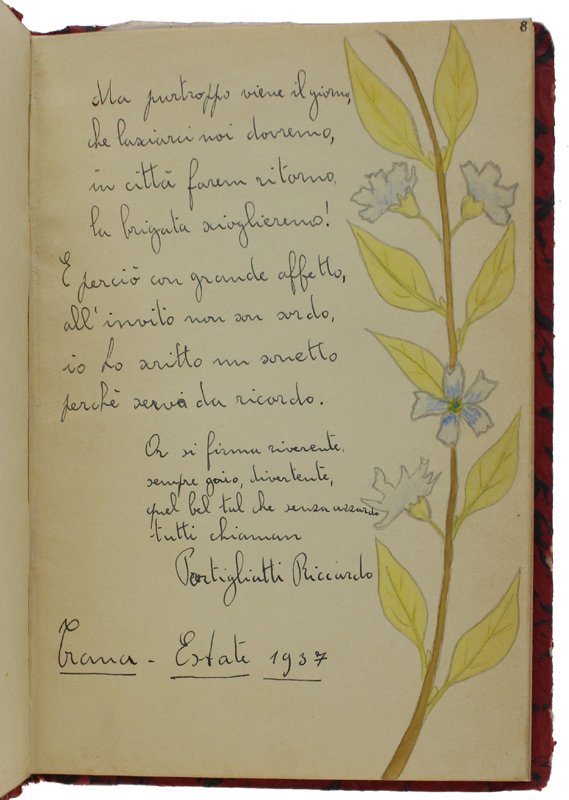 8
Ma purtroppo viene il giorno,
che lasciarci noi dovremo,
in città farem ritorno,
la brigata scioglieremo!
E perciò con grande affetto,
all'invito non son sordo,
io ho scritto un sonetto
perchè serva da ricordo.
Or si firma riverente,
sempre gaio, divertente,
quel bel tal che senza azzardo
tutti chiaman
Portigliatti Riccardo
Trana - Estate 1937